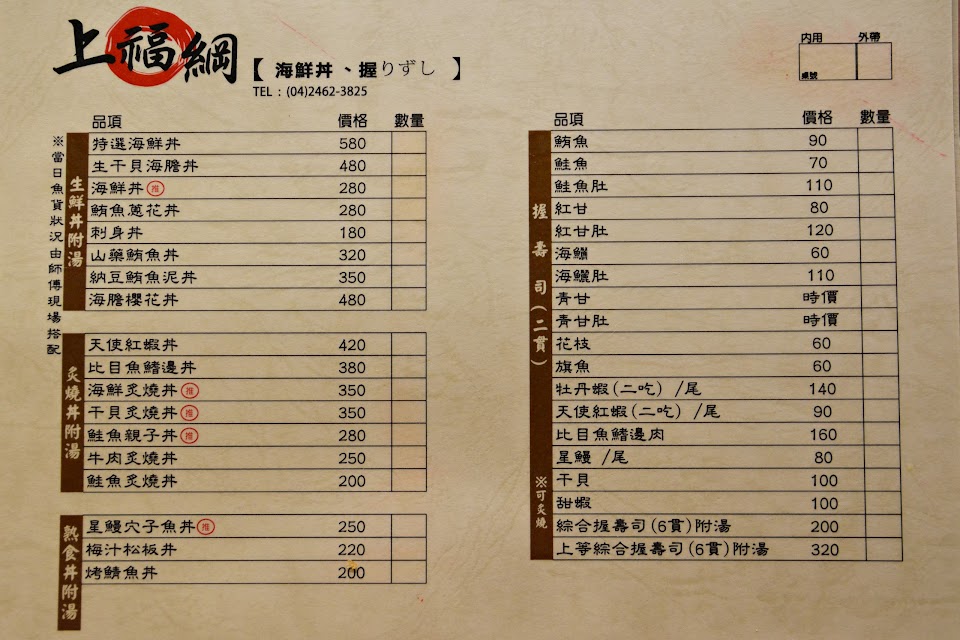 上福綱
【 海鮮丼、握りずし 】
TEL：(04)2462-3825
内用 外帶
桌號
※當日魚貨狀況由師傅現場搭配
品項 價格 數量
生鮮丼附湯
特選海鮮丼 580
生干貝海膽丼 480
海鮮丼 推 280
鮪魚蔥花丼 280
刺身丼 180
山藥鮪魚丼 320
納豆鮪魚泥丼 350
海膽櫻花丼 480
炙燒丼附湯
天使紅蝦丼 420
比目魚鰭邊丼 380
海鮮炙燒丼 推 350
干貝炙燒丼 推 350
鮭魚親子丼 推 280
牛肉炙燒丼 250
鮭魚炙燒丼 200
熟食丼附湯
星鰻穴子魚丼 推 250
梅汁松板丼 220
烤鯖魚丼 200
品項 價格 數量
握壽司(二貫)
※可炙燒
鮪魚 90
鮭魚 70
鮭魚肚 110
紅甘 80
紅甘肚 120
海鱺 60
海鱺肚 110
青甘 時價
青甘肚 時價
花枝 60
旗魚 60
牡丹蝦(二吃) /尾 140
天使紅蝦(二吃) /尾 90
比目魚鰭邊肉 160
星鰻 /尾 80
干貝 100
甜蝦 100
綜合握壽司(6貫)附湯 200
上等綜合握壽司(6貫)附湯 320